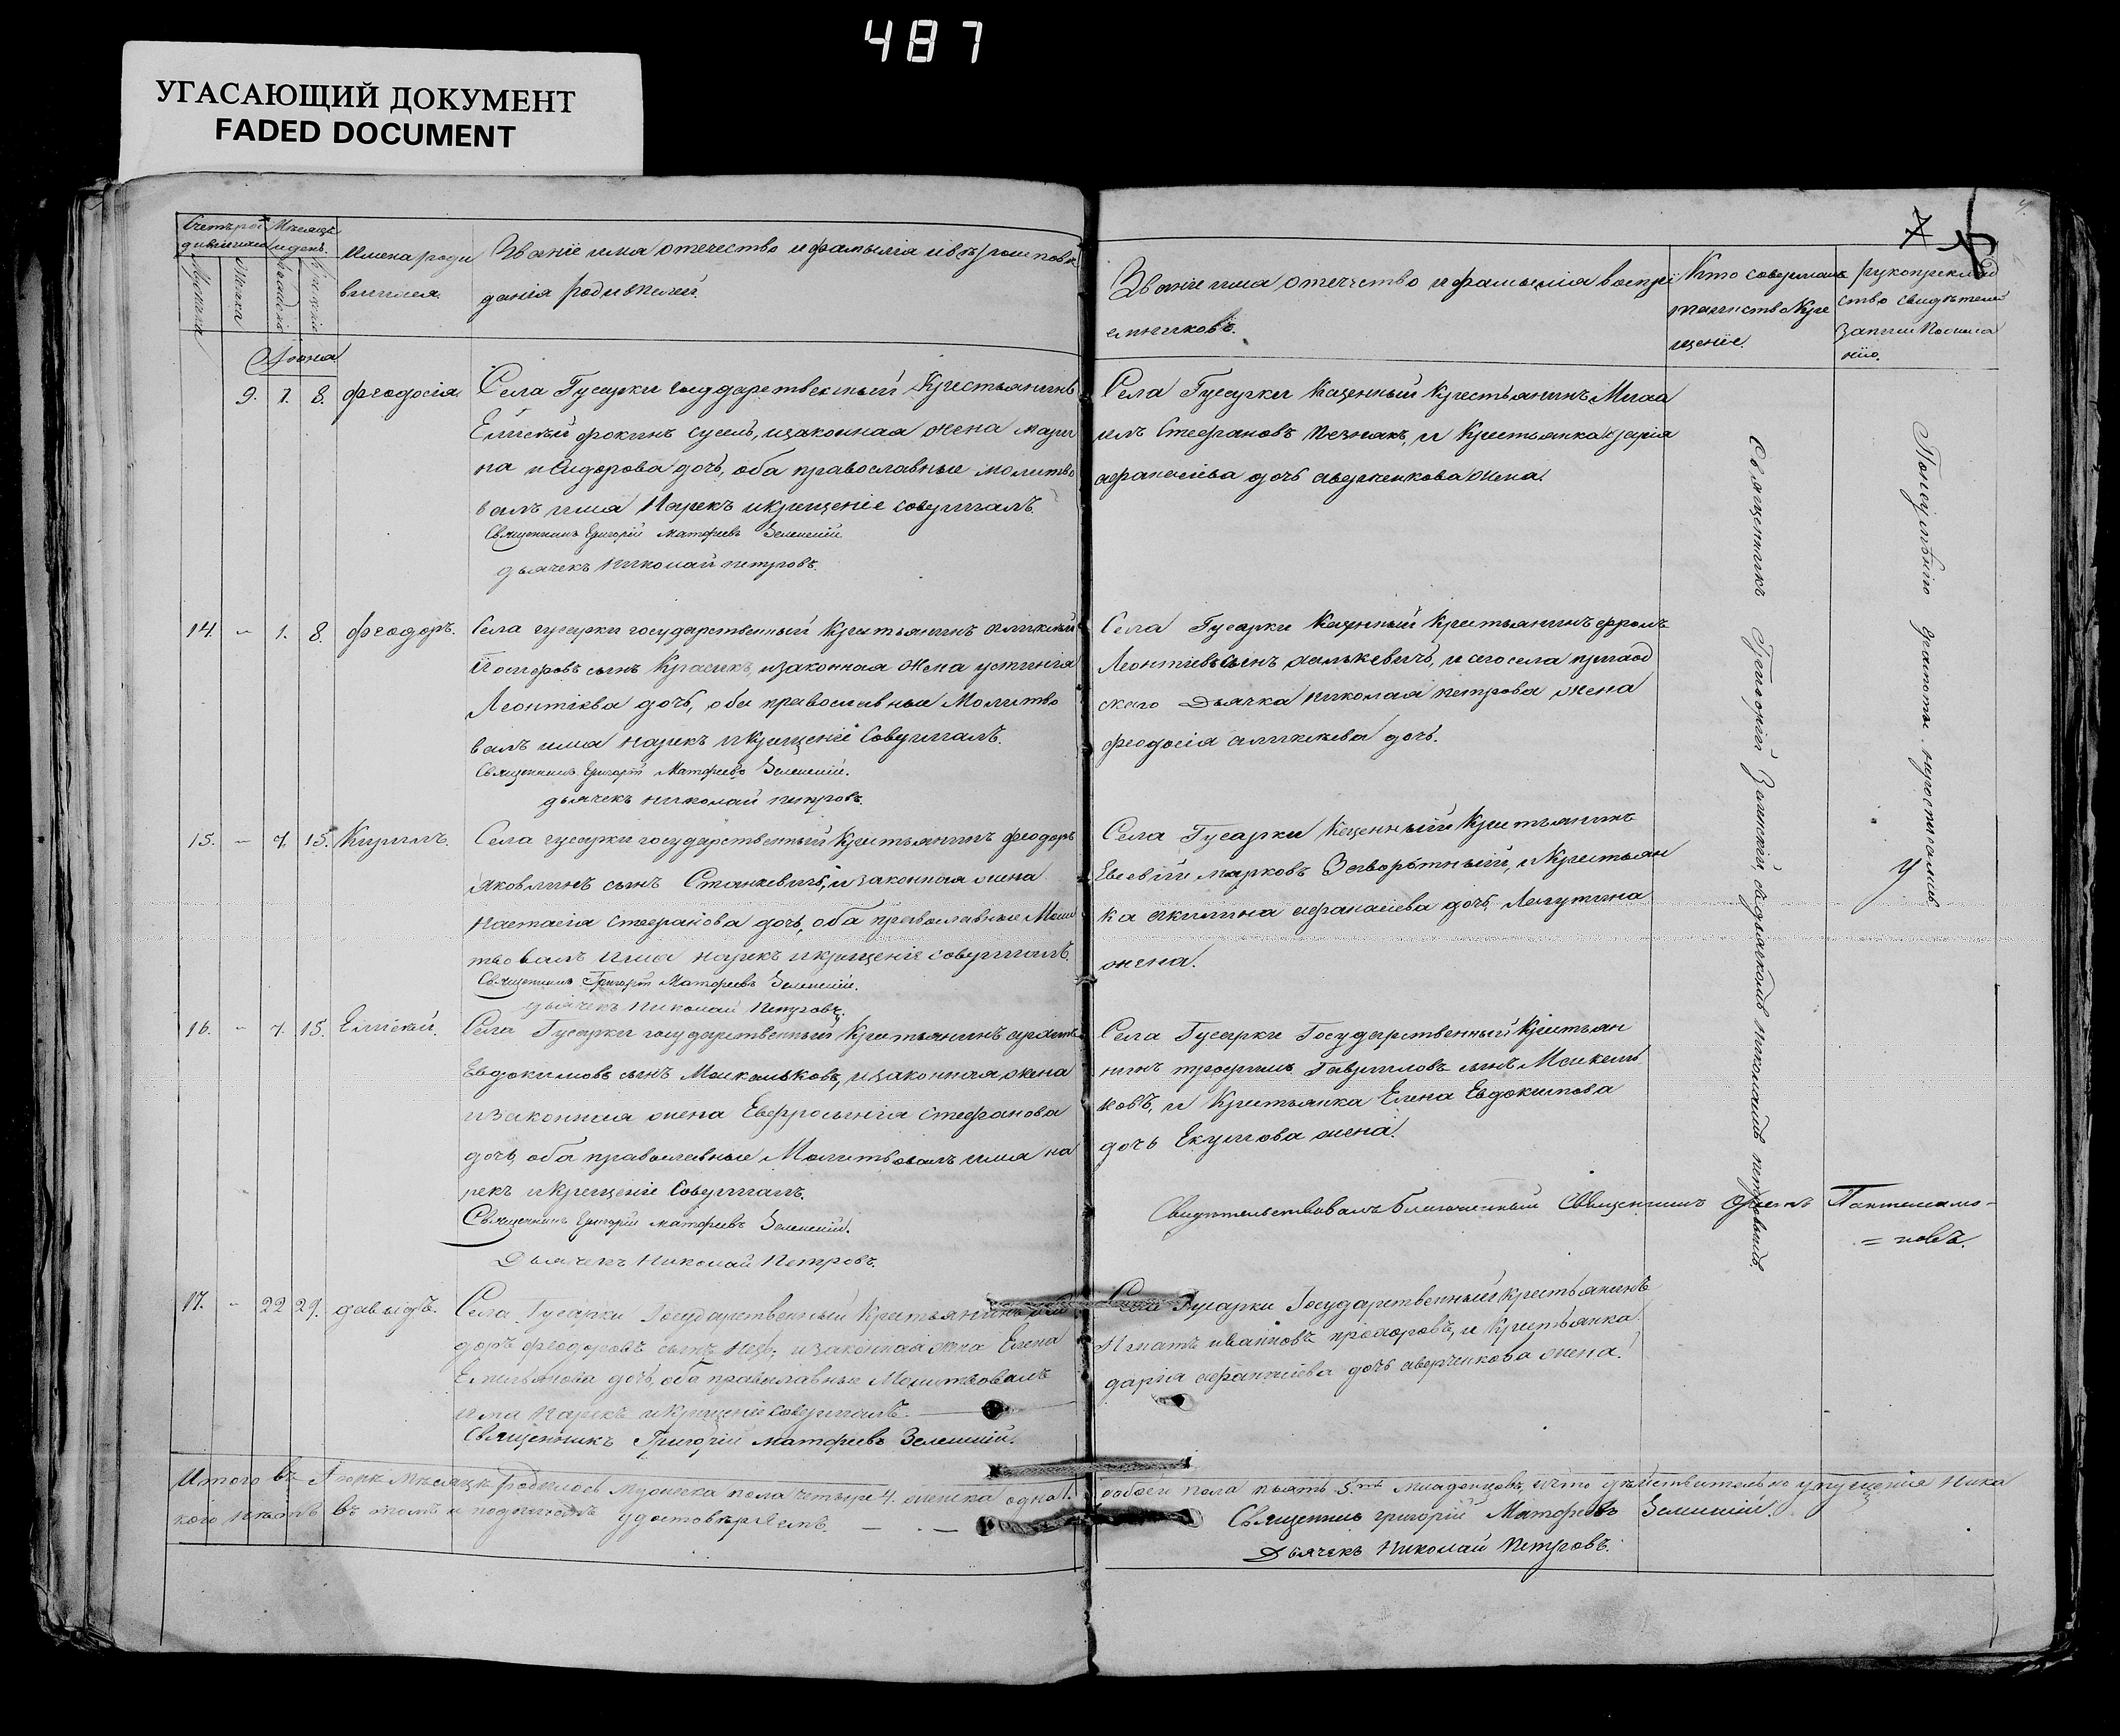 487
УГАСАЮЩИЙ ДОКУМЕНТ
FADED DOCUMENT
Счетъ ро
дившихся
Мѣсяцъ
и день.
Имена роди
вшихся.
Званіе имя отечество и фамилія и вѣроисповѣ
данія родителей.
Мужска
Женска
рожденія
крещенія
Іюня
9. 1. 8. Феодосія
Села Гусарки государственный Крестьянинъ
Елисей Фокинъ Сусель, и законная жена Мари
на и Сидорова дочь, оба православные молитво
валъ имя Нарекъ и крещеніе совершалъ.
Священникъ Григорій Матфеевъ
дьячекъ Николай Петровъ.
14. 1. 8. Феодоръ.
Села Гусарки государственный Крестьянинъ Алексій
Іосифовъ сынъ Красикъ, и законная жена Устинія
Леонтіева дочь, оба православные Молитво
валъ имя нарекъ и крещеніе Совершалъ.
Священникъ Григорій Матфеевъ
дьячекъ Николай Петровъ.
15. 7. 15. Кириллъ.
Села Гусарки государственный Крестьянинъ Феодоръ
Яковлинъ сынъ Станкевичъ, и законная жена
Настасія Стефанова дочь, оба православные Моли
твовалъ имя нарекъ и крещеніе совершалъ.
Священникъ Григорій Матфеевъ
дьячекъ Николай Петровъ.
16. 7. 15. Елисей.
Села Гусарки государственный Крестьянинъ
Евдокимовъ сынъ и законная жена
и законная жена Евфросинія Стефанова
дочь, оба православные Молитвовалъ имя на
рекъ и Крещеніе Совершалъ.
Священникъ Григорій Матфеевъ
Дьячекъ Николай Петровъ.
17. 22 29. Давыдъ.
Села Гусарки Государственный Крестьянинъ
доръ Феодоровъ сынъ и законная жена Елена
Емельянова дочь, оба православные Молитвовалъ
имя Нарекъ и Крещеніе Совершилъ.
Священникъ Григорій Матфеевъ
Итого въ Іюнѣ Мѣсяцѣ родилось Мужеска пола четыре 4. женска одна 1.
кого въ томъ и подписомъ удостовѣряемъ.
7
Званіе имя отечество и фамилія воспрі
емниковъ.
Кто совершалъ
таинство Кре
щеніе.
рукоприклад
ство свидѣтелей
записи по жела
нію.
Села Гусарки Казенный Крестьянинъ Миха
илъ Стефановъ и Крестьянка Дарія
Афанасіева дочь Аверченкова жена.
Села Гусарки Казенный Крестьянинъ
Леонтіевъ сынъ и того села приход
скаго Дьячка Николая Петрова жена
Феодосія Алексіева дочь.
Села Гусарки Казенный Крестьянинъ
Евсевій Марковъ Заворотный, и Крестьян
ка Акилина Афанасіева дочь
жена.
Села Гусарки Государственный Крестьян
нинъ Трофимъ Гавриловъ сынъ
ковъ, и Крестьянка Елена Евдокимова
дочь жена.
Свидѣтельствовалъ Благочинный Священникъ
Села Гусарки Государственный Крестьянинъ
Игнатъ Ивановъ и Крестьянка
Дарія Афанасіева дочь Аверченкова жена.
Священникъ Григорій съ дьячкомъ Николаемъ Петровымъ.
грамоты
обоего пола пять 5. младенцовъ, и что дѣйствительно упущенія Ника
Священникъ Григорій Матфеевъ
Дьячекъ Николай Петровъ.